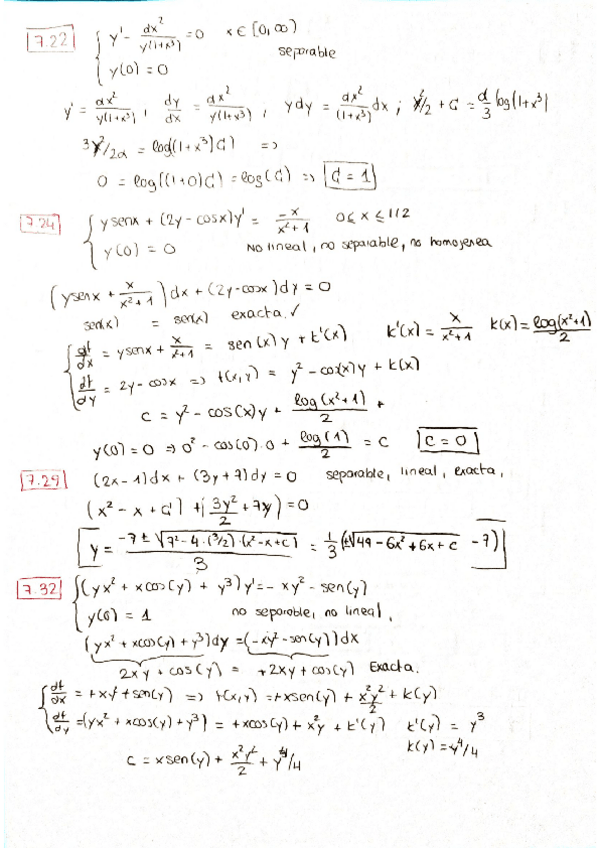 7.22 { y' - dx²/y(1+x³) = 0   x ∈ [0,∞)
separable
y(0) = 0
y' = dx²/y(1+x³) , dy/dx = dx²/y(1+x³) ; y dy = dx²/(1+x³) dx ; y²/2 + C = d/3 log(1+x³)
3y²/2α = log((1+x³)C) =>
0 = log((1+0)C) = log(C) => C = 1
7.24 { y senx + (2y - cosx)y' = -x/x²+1   0 ≤ x ≤ 1/2
y(0) = 0   No lineal, no separable, no homogenea
(y senx + x/x²+1) dx + (2y-cosx) dy = 0
sen(x) = sen(x) exacta. ✓
{ df/dx = y senx + x/x²+1 = sen(x)y + k'(x)   k'(x) = x/x²+1   k(x) = log(x²+1)/2
df/dy = 2y - cosx => f(x,y) = y² - cos(x)y + k(x)
C = y² - cos(x)y + log(x²+1)/2
y(0) = 0 => 0² - cos(0)·0 + log(1)/2 = C   C = 0
7.29 (2x-1)dx + (3y+7)dy = 0   separable, lineal, exacta,
(x² - x + C) + (3y²/2 + 7y) = 0
y = -7 ± √7² - 4·(3/2)·(x²-x+c)/3 = 1/3 (±√49 - 6x² + 6x + c - 7)
7.32 { (yx² + xcos(y) + y³)y' = - xy² - sen(y)
y(0) = 1   no separable, no lineal,
(yx² + xcos(y) + y³)dy = (-xy² - sen(y))dx
2xy + cos(y) = +2xy + cos(y) Exacta.
{ df/dx = +xy² + sen(y) => f(x,y) = +xsen(y) + x²y²/2 + k(y)
df/dy = (yx² + xcos(y) + y³) = +xcos(y) + x²y + k'(y)   k'(y) = y³
k(y) = y⁴/4
C = x sen(y) + x²y²/2 + y⁴/4